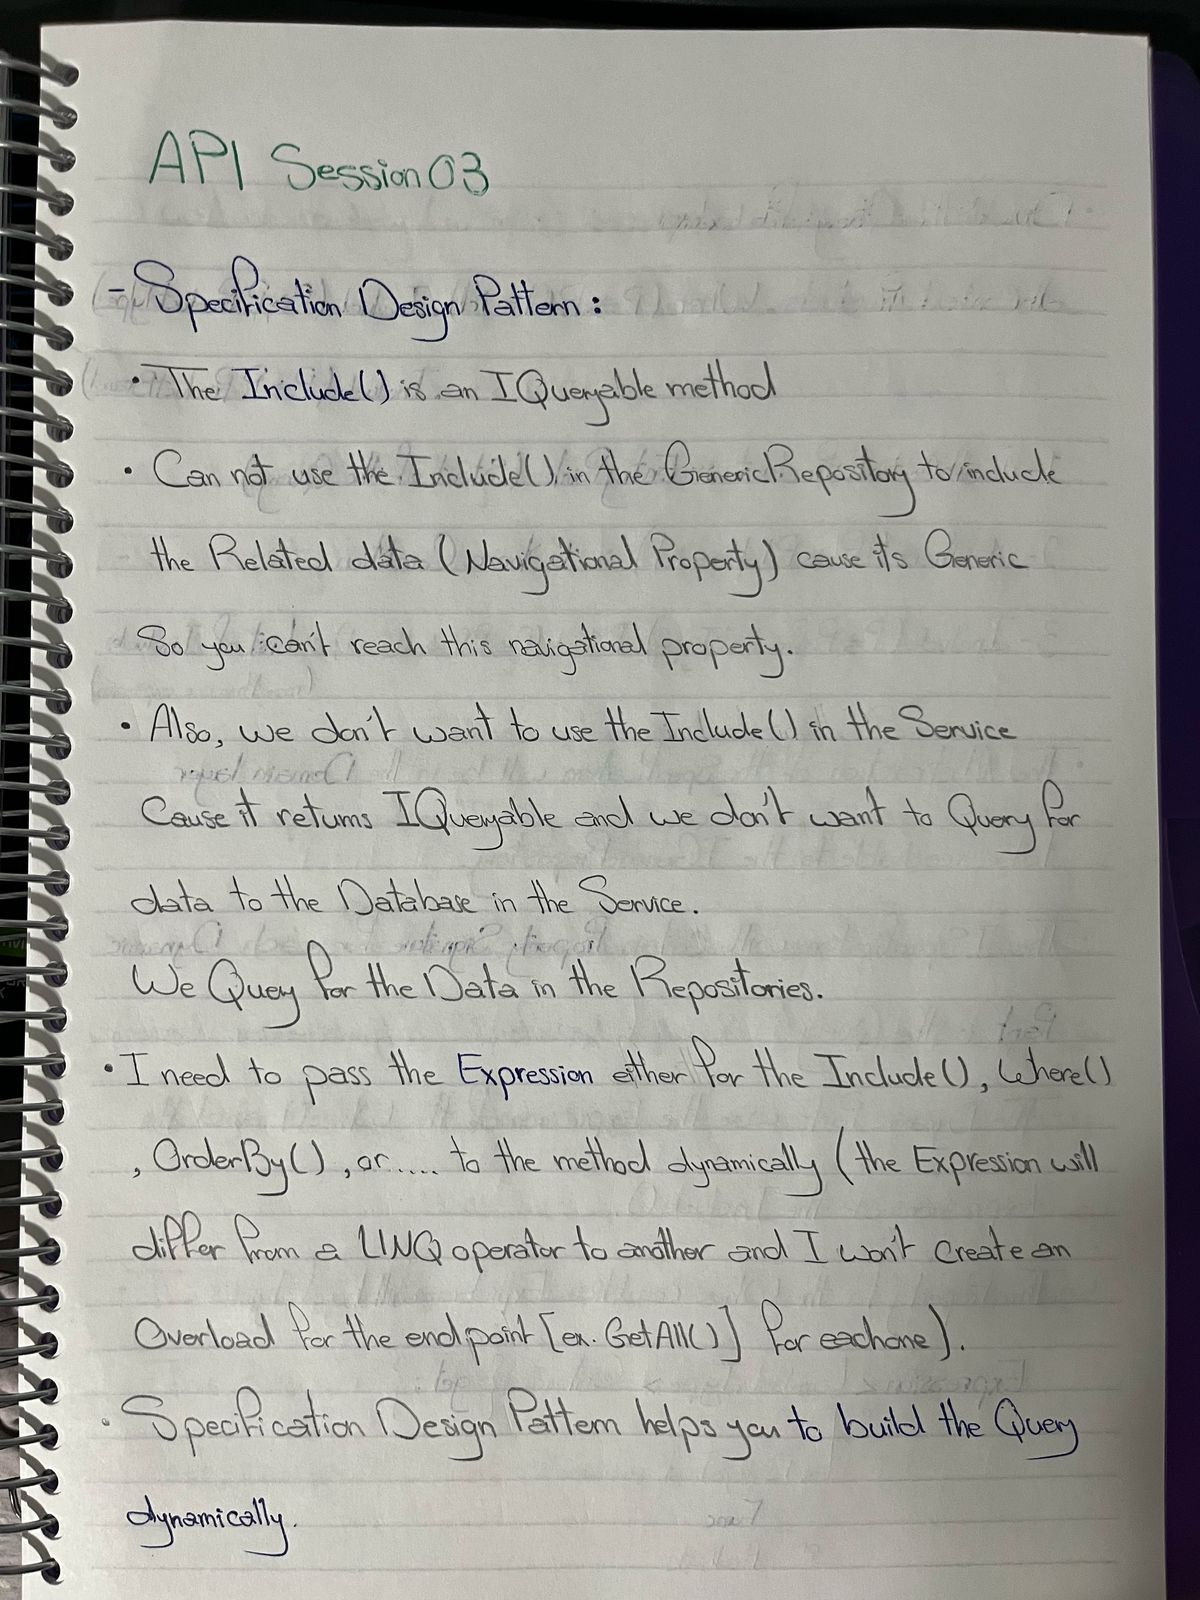 API Session 03
- Specification Design Pattern :
• The Include() is an IQueryable method
• Can not use the Include() in the GenericRepository to include
the Related data (Navigational Property) cause its Generic
So you can't reach this navigational property.
• Also, we don't want to use the Include() in the Service
Cause it returns IQueryable and we don't want to Query for
data to the Database in the Service.
We Query for the Data in the Repositories.
• I need to pass the Expression either for the Include(), Where()
, OrderBy(), or..... to the method dynamically (the Expression will
differ from a LINQ operator to another and I won't create an
Overload for the endpoint [ex. GetAll()] for eachone).
• Specification Design Pattern helps you to build the Query
dynamically.